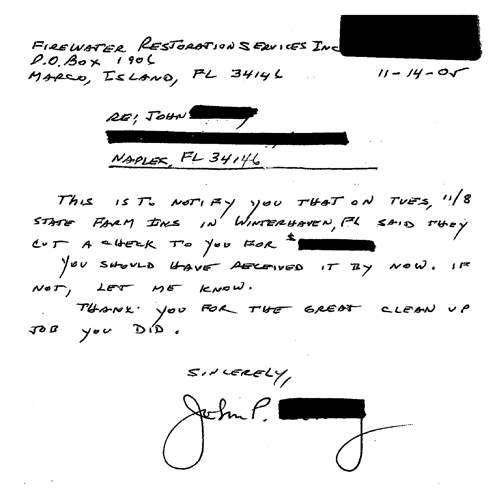 FIREWATER RESTORATION SERVICES INC
P.O. BOX 1906
MARCO, ISLAND, FL 34146
11-14-05
RE: JOHN
NAPLES, FL 34146
THIS IS TO NOTIFY YOU THAT ON TUES, 11/8
STATE FARM INS IN WINTERHAVEN, FL SAID THEY
CUT A CHECK TO YOU FOR $
YOU SHOULD HAVE RECEIVED IT BY NOW. IF
NOT, LET ME KNOW.
THANK YOU FOR THE GREAT CLEAN UP
JOB YOU DID.
SINCERELY,
John P.